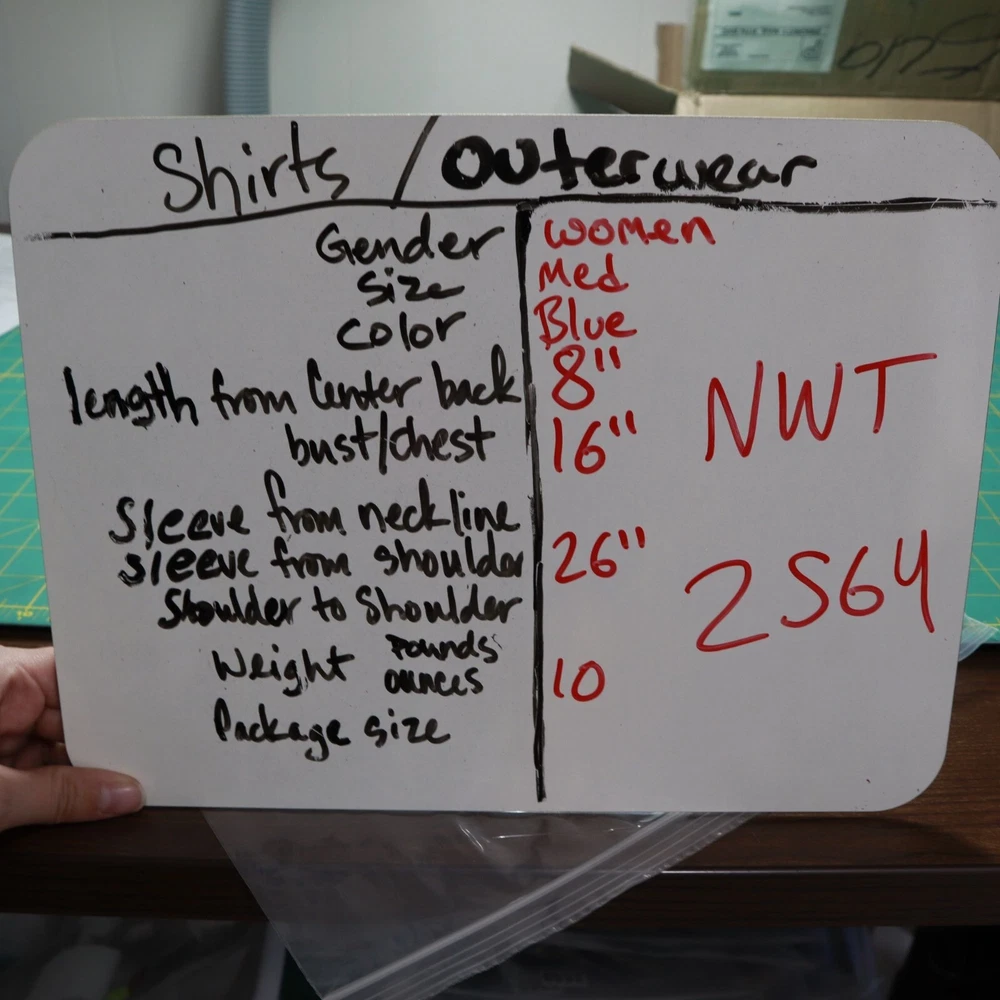 Shirts / Outerwear
Gender women
size Med
color Blue
length from Center back 8"
bust/chest 16"
NWT
Sleeve from neckline
sleeve from shoulder 26"
Shoulder to Shoulder
2564
Weight Pounds
ounces 10
Package size